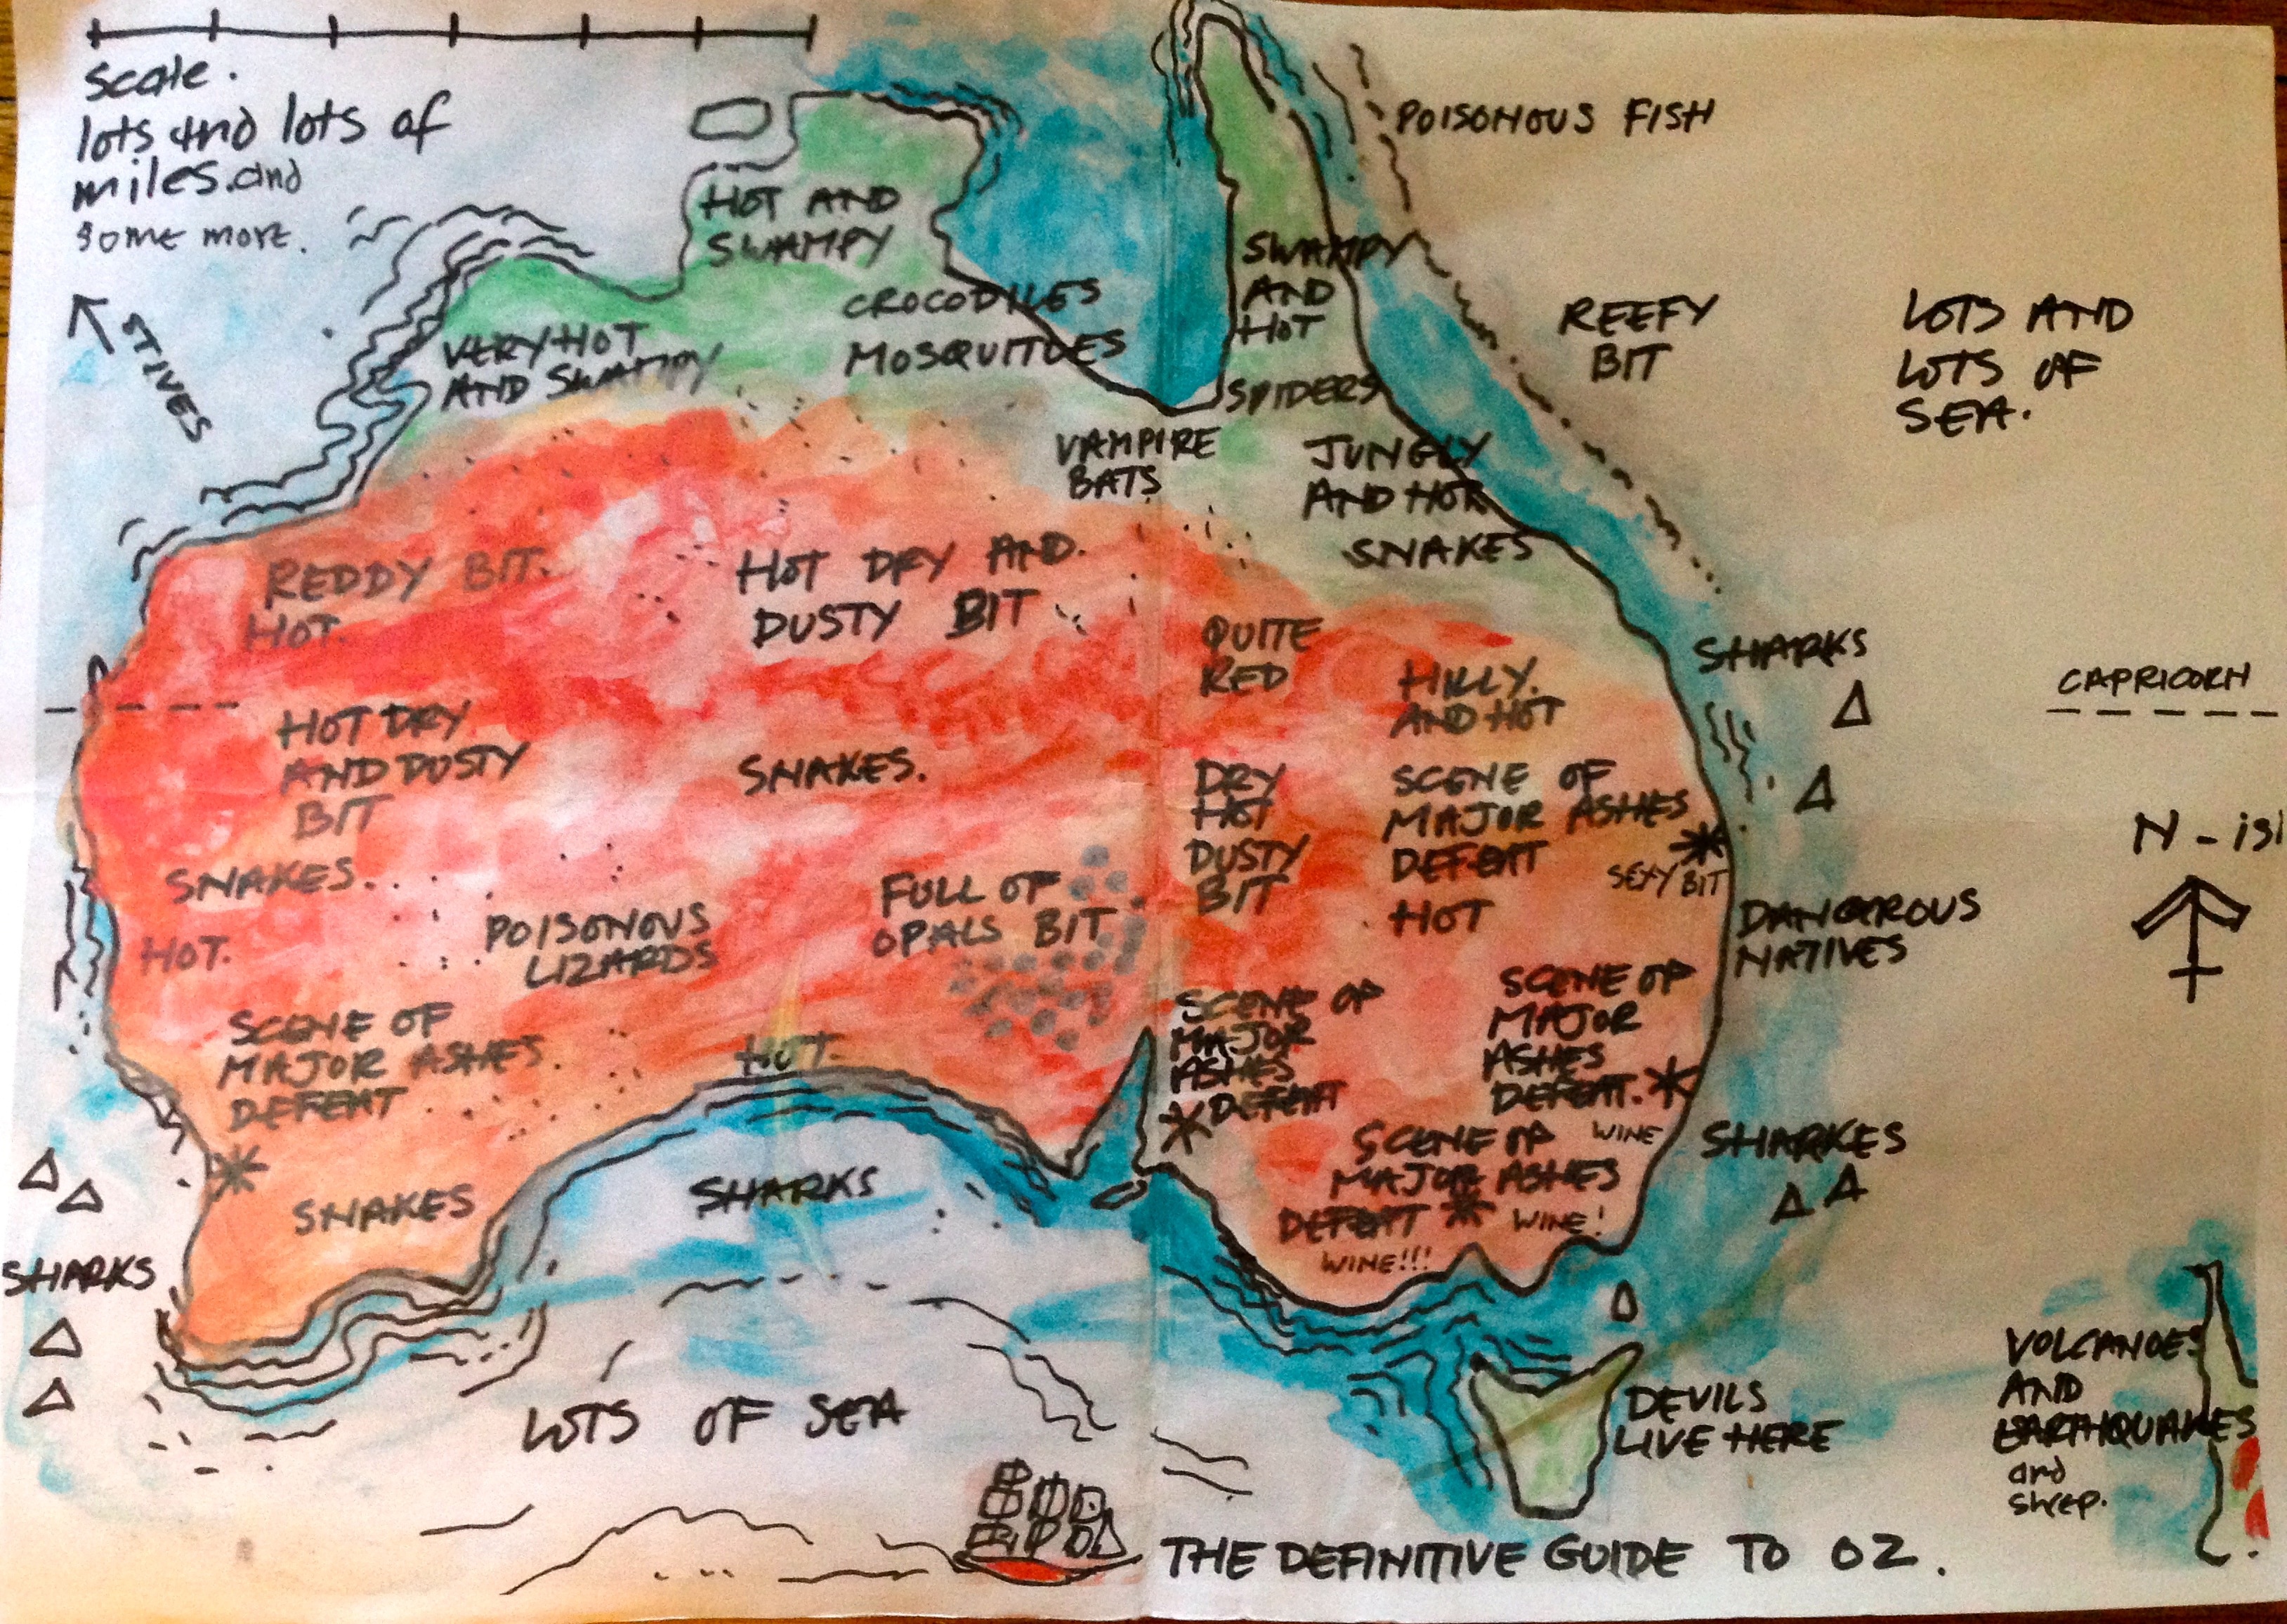 scale.
lots and lots of
miles.and
some more.
STIVES
HOT AND
SWAMPY
VERY HOT
AND SWAMPY
CROCODILES
MOSQUITOES
POISONOUS FISH
SWAMPY
AND
HOT
SPIDERS
VAMPIRE
BATS
JUNGLY
AND HOT
SNAKES
REEFY
BIT
LOTS AND
LOTS OF
SEA.
REDDY BIT.
HOT.
HOT DRY AND.
DUSTY BIT
QUITE
RED
HILLY.
AND HOT
SHARKS
CAPRICORN
HOT DRY
AND DUSTY
BIT
SNAKES.
SNAKES.
HOT.
POISONOUS
LIZARDS
FULL OF
OPALS BIT
DRY
HOT
DUSTY
BIT
SCENE OF
MAJOR ASHES
DEFEAT
HOT
SEXY BIT
N-ish
DANGEROUS
NATIVES
SCENE OF
MAJOR ASHES.
DEFEAT
HOT.
SCENE OF
MAJOR
ASHES
DEFEAT
SCENE OF
MAJOR
ASHES
DEFEAT.
SCENE OF
MAJOR ASHES
DEFEAT
WINE
WINE!
WINE!!!
SNAKES
SHARKS
SHARKS
SHARKES
LOTS OF SEA
DEVILS
LIVE HERE
VOLCANOES
AND
EARTHQUAKES
and
sheep.
THE DEFINITIVE GUIDE TO OZ.